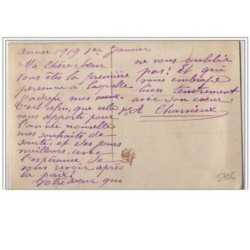 année 1919 1er Janvier
Ma chère sœur
vous êtes la première
personne à laquelle
j'adresse mes vœux.
C'est afin, que cela
vous apporte pour
l'année nouvelle
mes souhaits de
santé, et des jours
meilleurs, avec
l'espérance, de
nous revoir après
la paix!
Votre sœur qui
ne vous oublie
pas! Et qui
vous embrasse
bien tendrement
avec son cœur
Charrieux